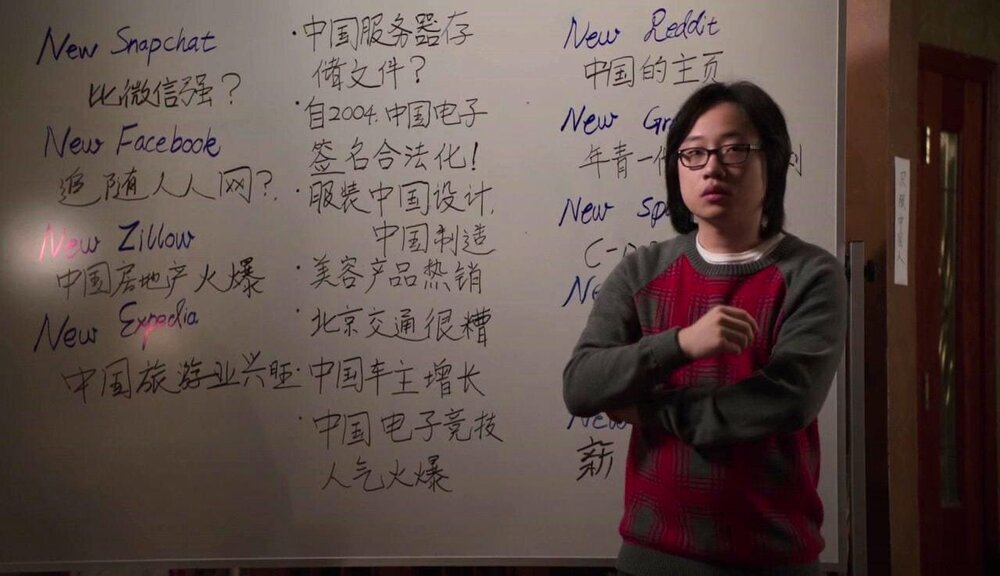 New Snapchat
比微信强？
New Facebook
追随人人网？
New Zillow
中国房地产火爆
New Expedia
中国旅游业兴旺
·中国服务器存
储文件？
·自2004.中国电子
签名合法化！
·服装中国设计，
中国制造
·美容产品热销
·北京交通很糟
·中国车主增长
·中国电子竞技
人气火爆
New Reddit
中国的主页
New Gr
年青一
New Sp
C-
Ne
New
新